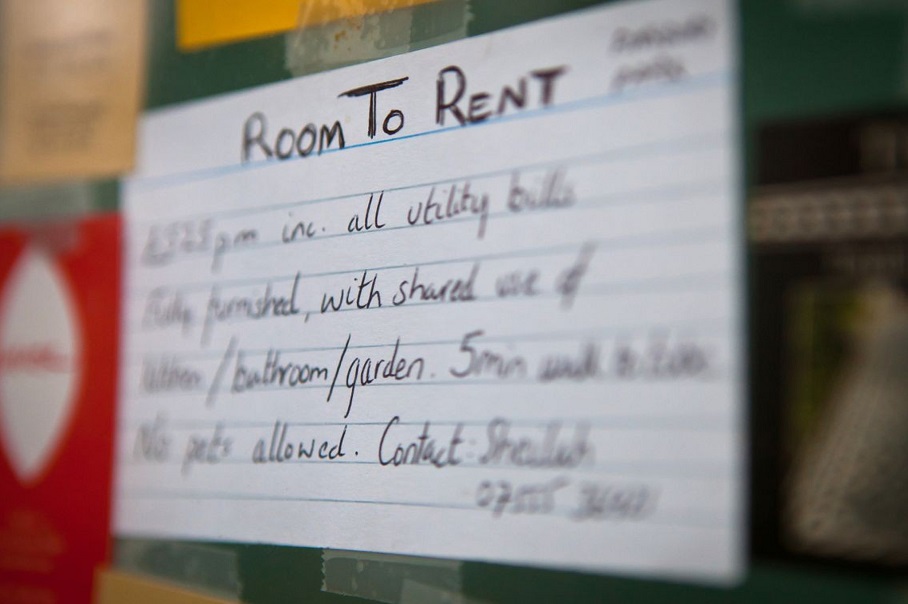 ROOM TO RENT
pm inc. all utility bills
Fully furnished, with shared use of
kitchen/bathroom/garden. 5min walk to
No pets allowed. Contact: Sheilah
07555